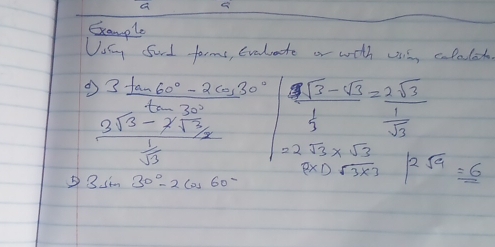 Example
Using Surd forms, Evaluate or with using calculator
a) 3 tan 60° - 2 cos 30°
tan 30°
3√3 - 2√3/2
1/√3
3√3 - √3 = 2√3
1/√3
= 2√3 × √3
√3×3
2√9 = 6
b) 3 sin 30° - 2 cos 60°